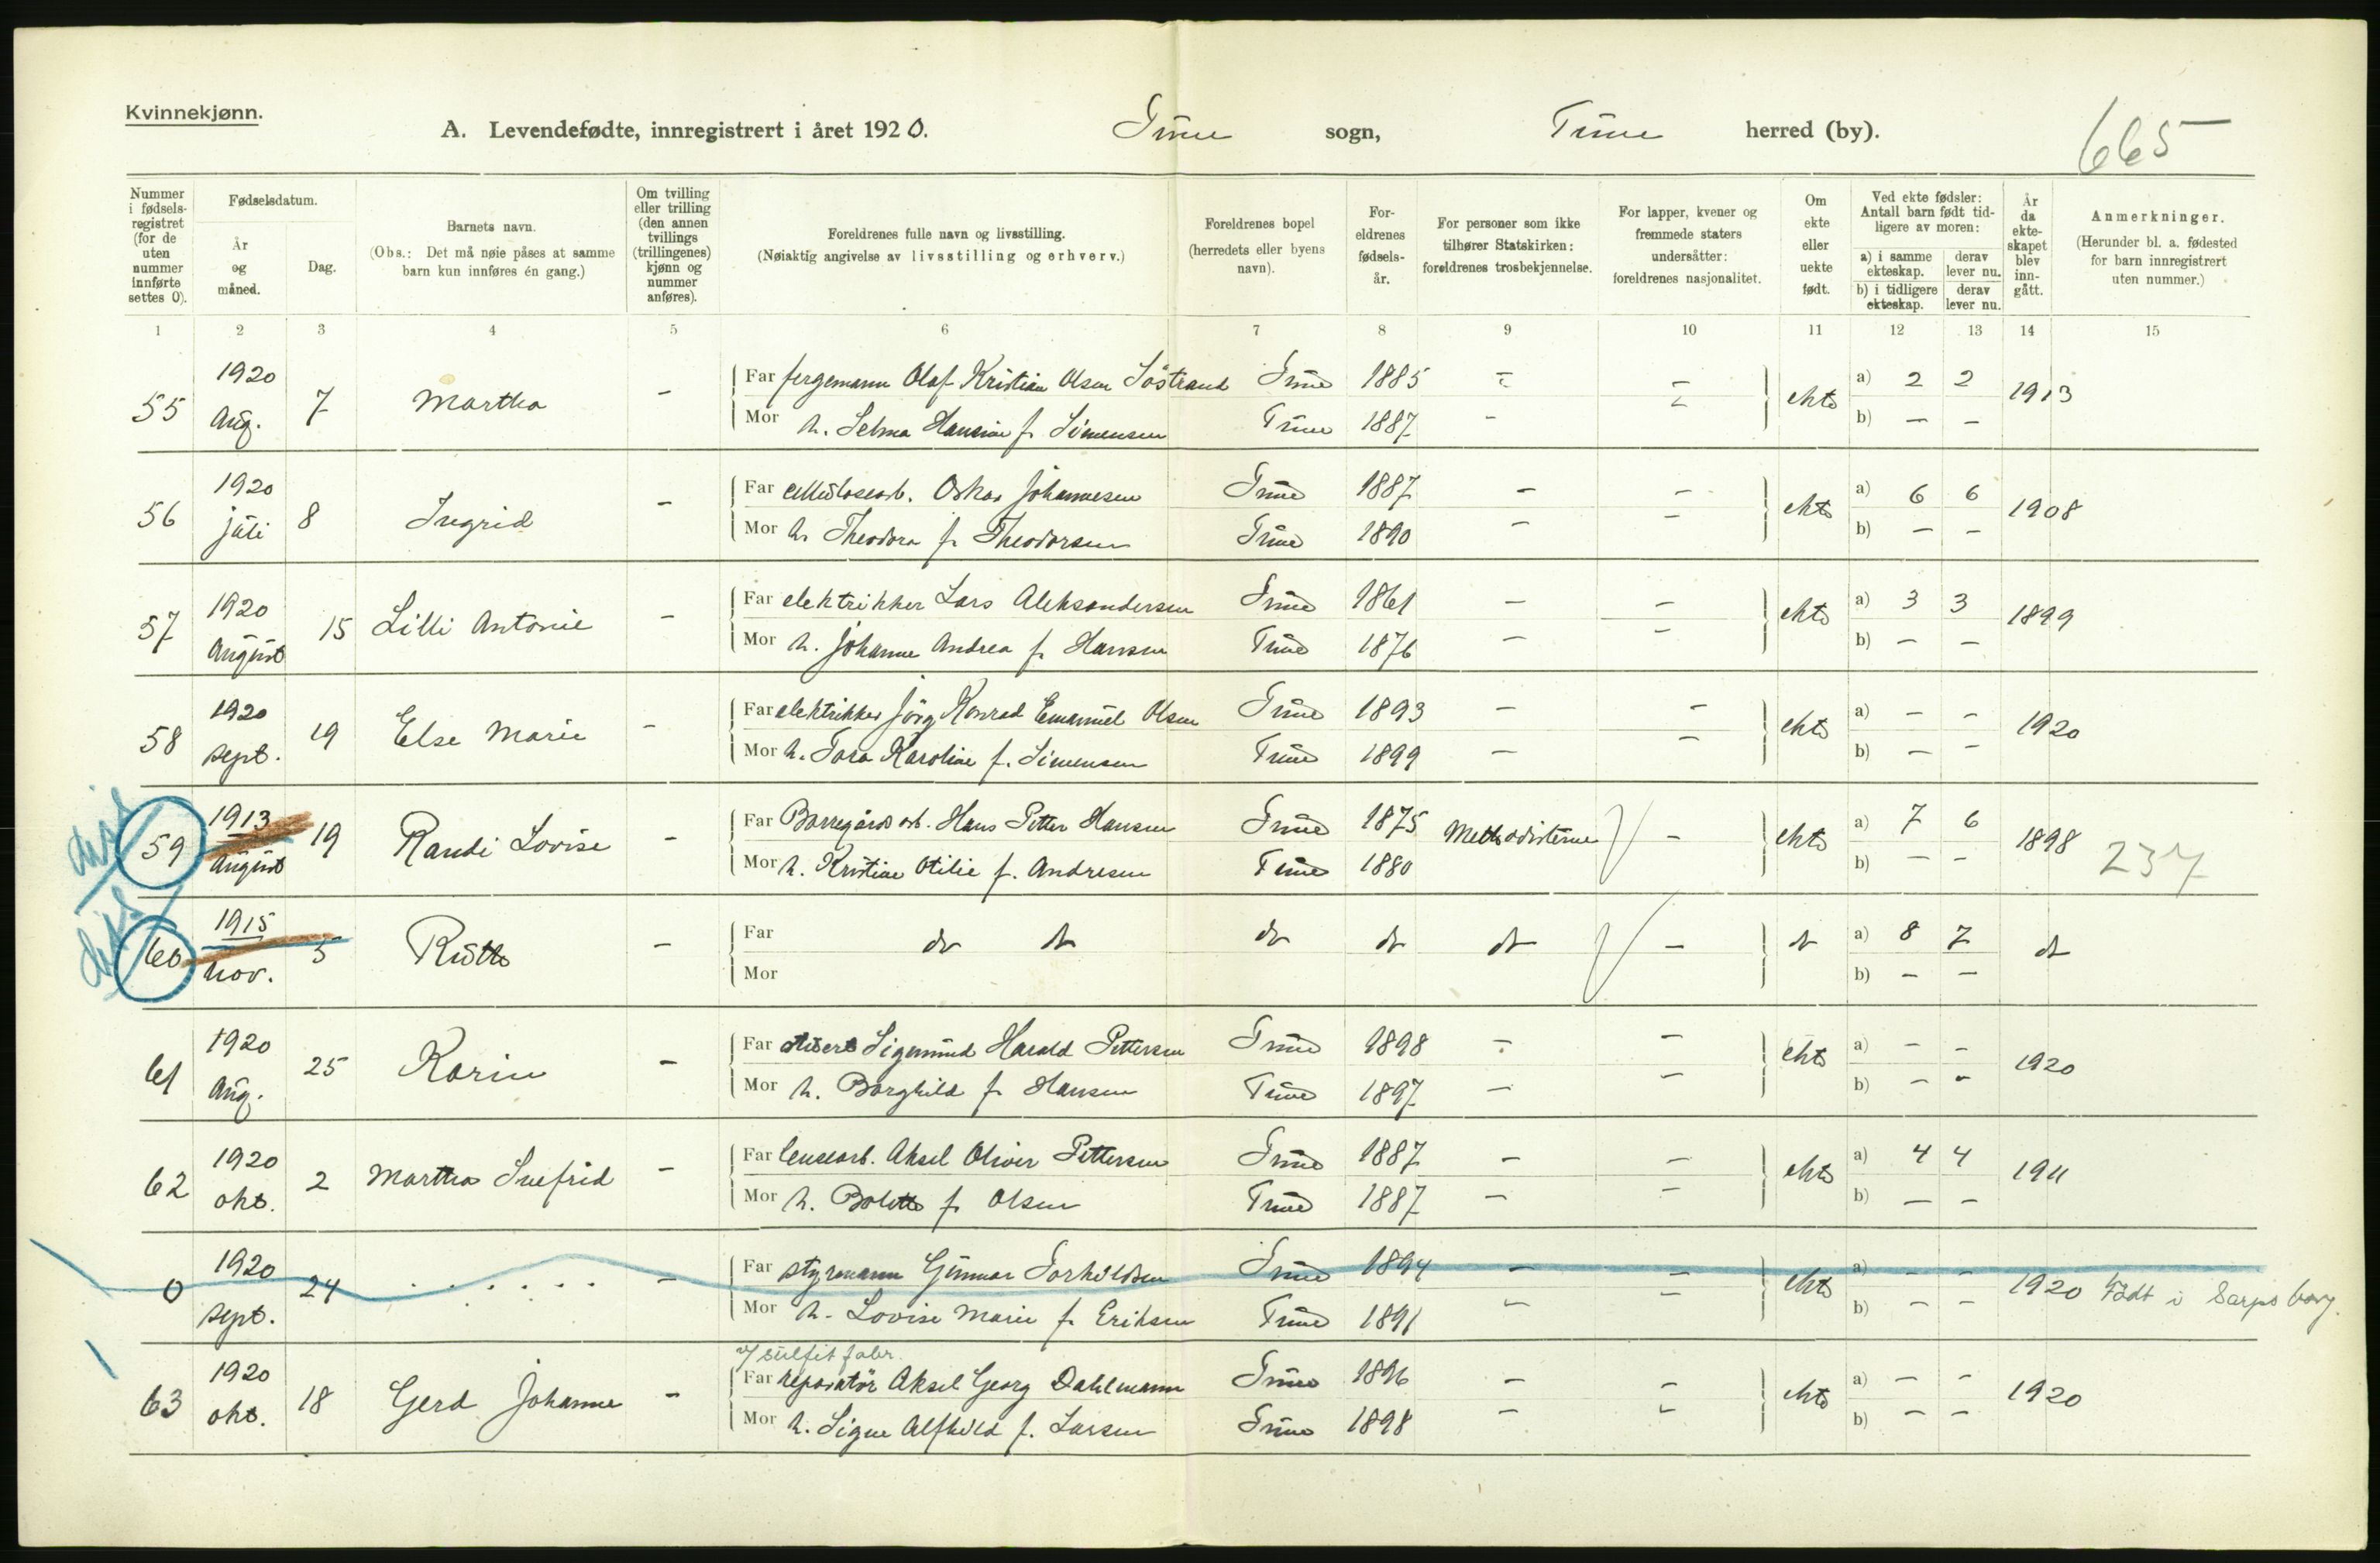 Kvinnekjønn.
A. Levendefødte, innregistrert i året 1920. Tune sogn, Tune herred (by). 665
Nummer i fødsels-registret (for de uten nummer innførte settes 0).
Fødselsdatum.
År og måned.
Dag.
Barnets navn.
(Obs.: Det må nøie påses at samme barn kun innføres én gang.)
Om tvilling eller trilling (den annen tvillings (trillingenes) kjønn og nummer anføres).
Foreldrenes fulle navn og livsstilling.
(Nøiaktig angivelse av livsstilling og erhverv.)
Foreldrenes bopel (herredets eller byens navn).
For-eldrenes fødsels-år.
For personer som ikke tilhører Statskirken: foreldrenes trosbekjennelse.
For lapper, kvener og fremmede staters undersåtter: foreldrenes nasjonalitet.
Om ekte eller uekte født.
Ved ekte fødsler: Antall barn født tid-ligere av moren:
a) i samme ekteskap. derav lever nu.
b) i tidligere ekteskap. derav lever nu.
År da ekte-skapet blev inn-gått.
Anmerkninger.
(Herunder bl. a. fødested for barn innregistrert uten nummer.)
1 2 3 4 5 6 7 8 9 10 11 12 13 14 15
55 1920 Aug. 7 Martha - Far fergemann Olaf Kristian Olsen Söstrand Tune 1885 - - ekte a) 2 2 1913
Mor h. Selma Hansine f. Simensen Tune 1887 - - b) - -
56 1920 juli 8 Ingrid - Far cellulosearb. Oskar Johannesen Tune 1887 - - ekte a) 6 6 1908
Mor h. Theodora f. Theodorsen Tune 1890 - - b) - -
57 1920 August 15 Lilli Antonie - Far elektrikker Lars Aleksandersen Tune 1861 - - ekte a) 3 3 1899
Mor h. Johanne Andrea f. Hansen Tune 1876 - - b) - -
58 1920 sept. 19 Else Marie - Far elektrikker Jörg Konrad Emanuel Olsen Tune 1893 - - ekte a) - - 1920
Mor h. Tora Karoline f. Simensen Tune 1899 - - b) - -
59 1913 August 19 Randi Lovise - Far Borregårdsarb. Hans Petter Hansen Tune 1875 Methodisterne - ekte a) 7 6 1898 237
Mor h. Kristine Otilie f. Andresen Tune 1880 b) - -
60 1915 nov. 5 Ruth - Far do do do do do - do a) 8 7 do
Mor b) - -
61 1920 Aug. 25 Karin - Far Sigmund Harald Pettersen Tune 1898 - - ekte a) - - 1920
Mor h. Borghild f. Hansen Tune 1897 - - b) - -
62 1920 okt. 2 Martha Snefrid - Far lensearb. Aksel Oliver Pettersen Tune 1887 - - ekte a) 4 4 1911
Mor h. Bolette f. Olsen Tune 1887 - - b) - -
0 1920 sept. 24 . . . . . . - Far styrmann Gunnar Torkildsen Tune 1894 - - ekte a) - - 1920 Født i Sarpsborg.
Mor h. Lovise Marie f. Eriksen Tune 1891 - - b) - -
v/ sulfit fabr.
63 1920 okt. 18 Gerd Johanne - Far reparatör Aksel Georg Dahlmann Tune 1896 - - ekte a) - - 1920
Mor h. Signe Alfhild f. Larsen Tune 1898 - - b) - -